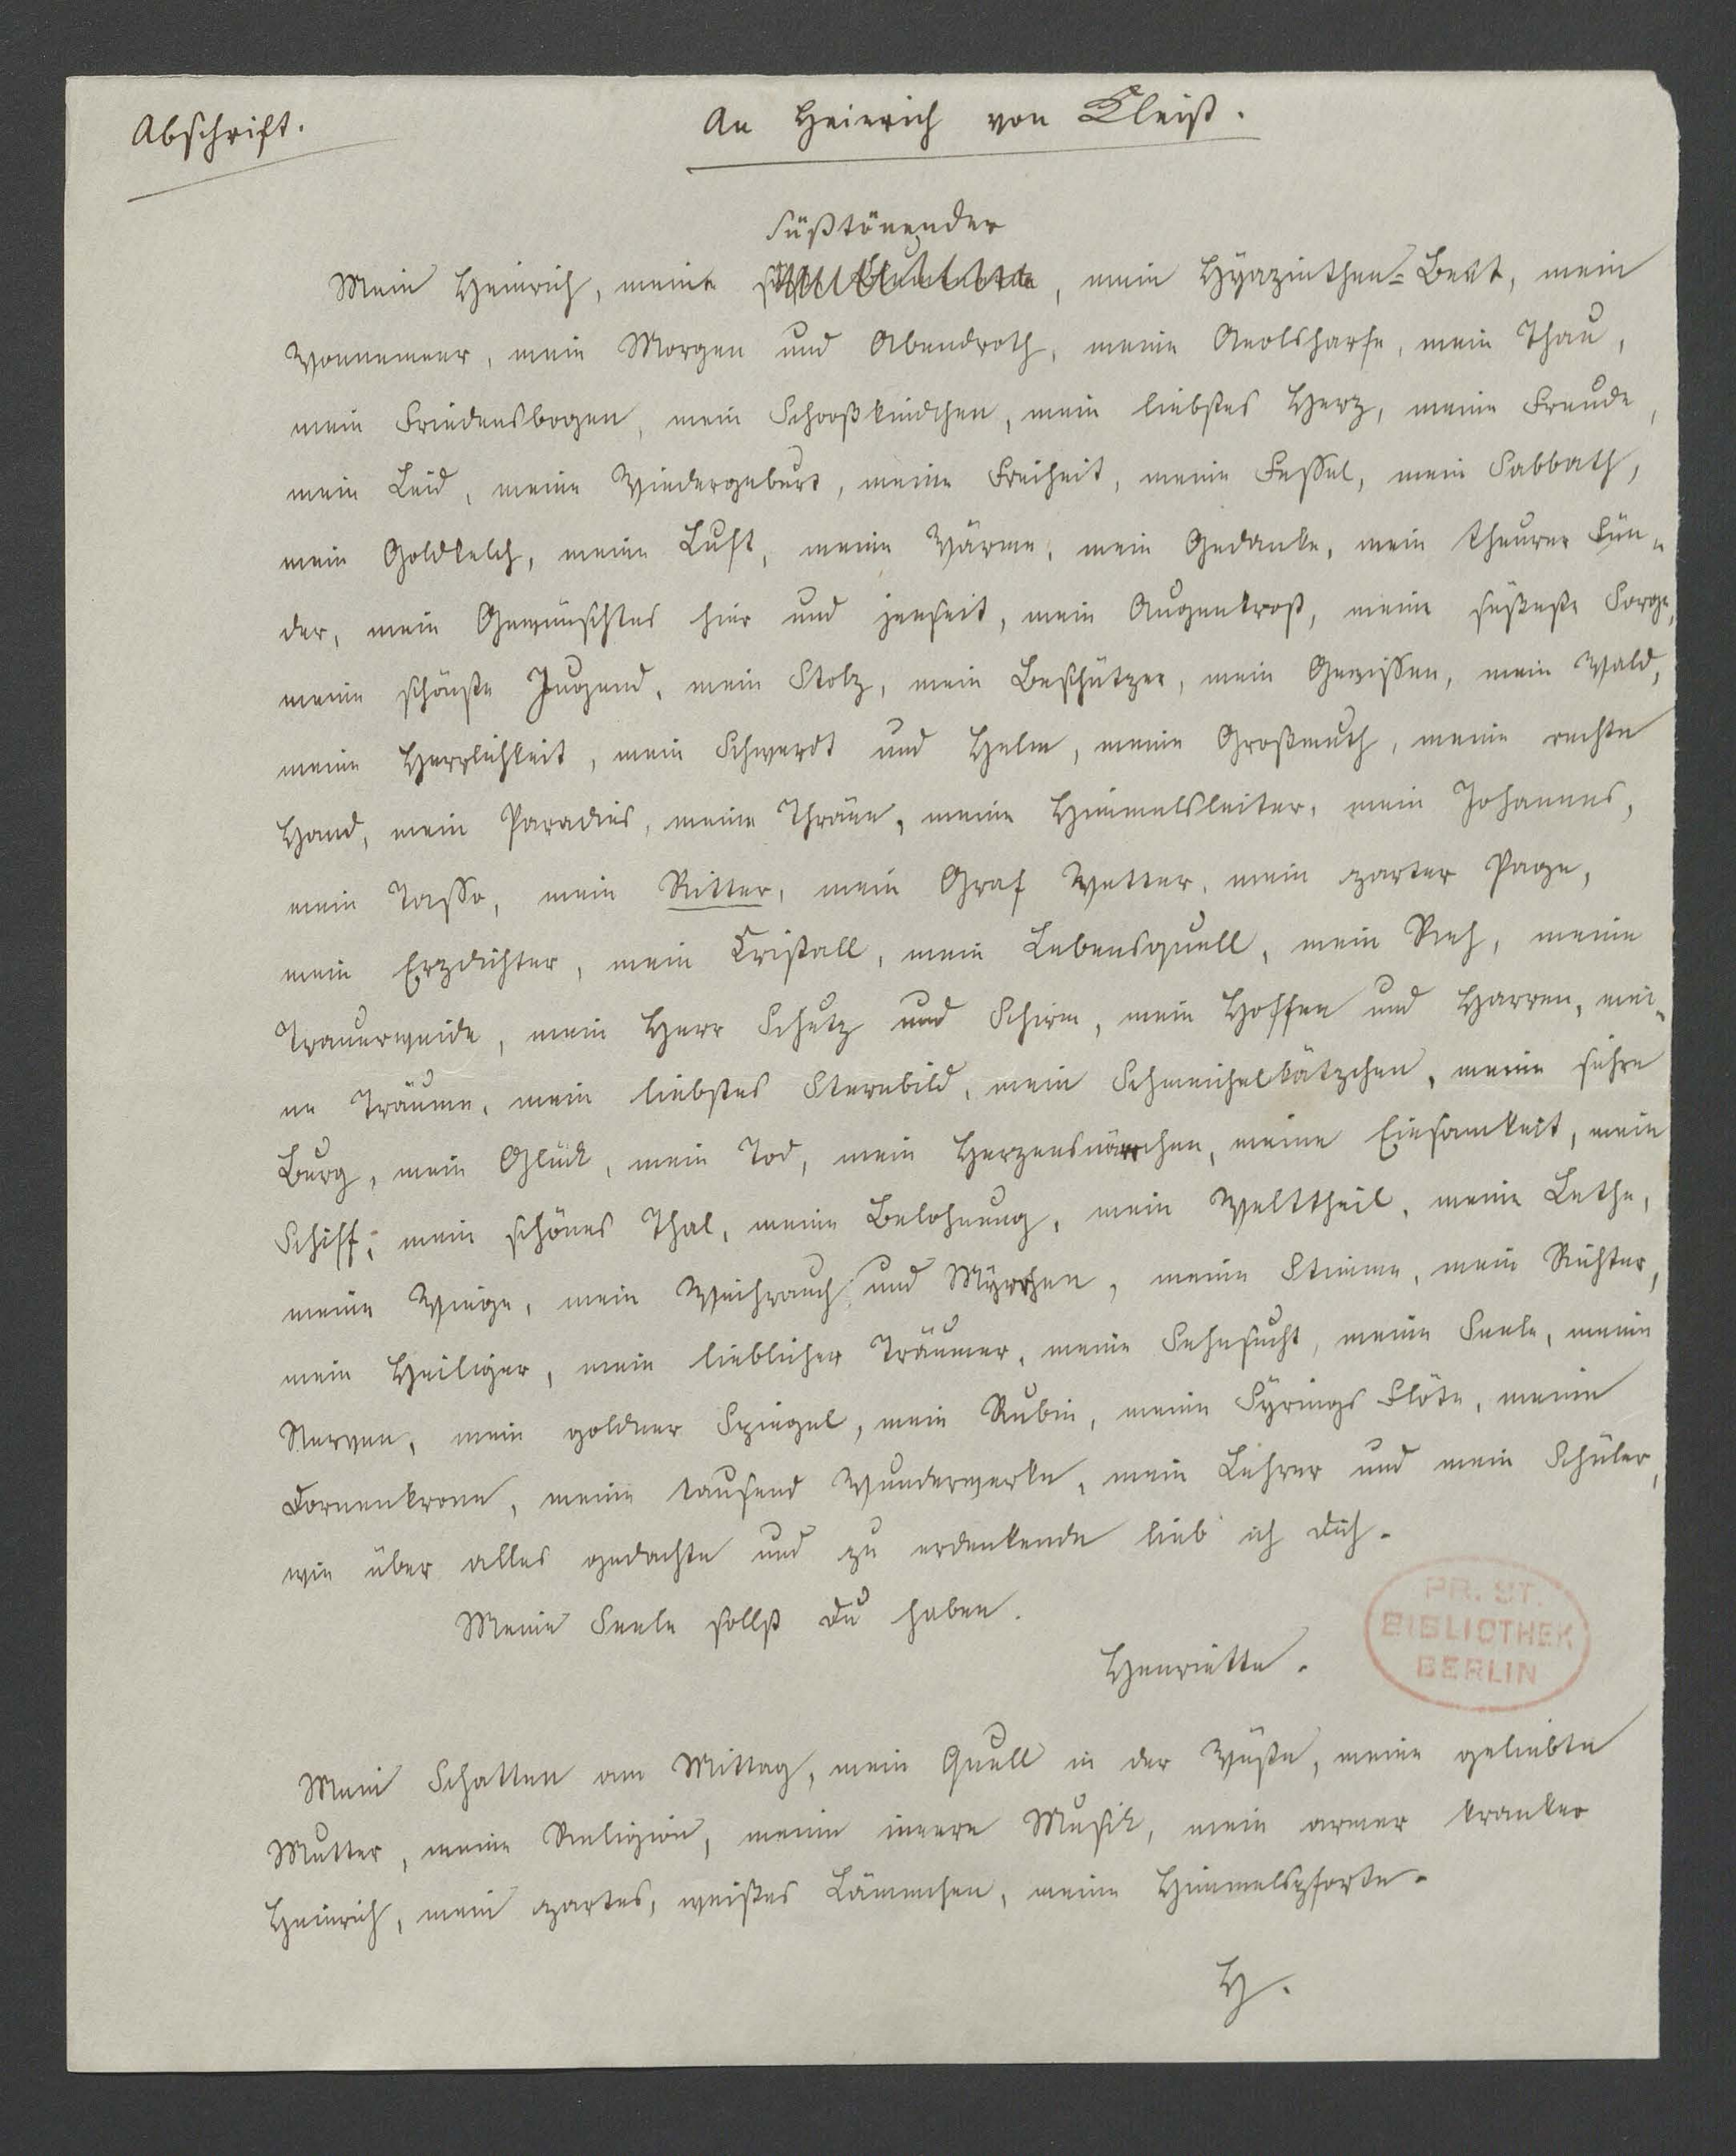 Abschrift.
An Heinrich von Kleist.
Süßtönender
Mein Heinrich, meine , mein Hyazinthen-Beet, mein
Wonnemeer, mein Morgen und Abendroth, meine Aeolsharfe, mein Thau,
mein Friedensbogen, mein Schooßkindchen, mein liebstes Herz, meine Freude,
mein Leid, meine Wiedergeburt, meine Freiheit, meine Fessel, mein Sabbath,
mein Goldkelch, meine Luft, meine Wärme, mein Gedanke, mein theurer Sün-
der, mein Gewünschtes hier und jenseit, mein Augentrost, meine süßeste Sorge,
meine schönste Jugend, mein Stolz, mein Beschützer, mein Gewissen, mein Wald,
meine Herrlichkeit, mein Schwerdt und Helm, meine Großmuth, meine rechte
Hand, mein Paradies, meine Thräne, meine Himmelsleiter, mein Johannes,
mein Tasso, mein Ritter, mein Graf Wetter, mein zarter Page,
mein Erzdichter, mein Kristall, mein Lebensquell, mein Reh, meine
Trauerweide, mein Herr Schutz und Schirm, mein Hoffen und Harren, mei-
ne Träume, mein liebstes Sternbild, mein Schmeichelkätzchen, meine sichre
Burg, mein Glück, mein Tod, mein Herzensnärrchen, meine Einsamkeit, mein
Schiff, mein schönes Thal, meine Belohnung, mein Welttheil, meine Lethe,
meine Wiege, mein Weihrauch und Myrrhen, meine Stimme, mein Richter,
mein Heiliger, mein lieblicher Träumer, meine Sehnsucht, meine Seele, meine
Nerven, mein goldner Spiegel, mein Rubin, meine Syrings Flöte, meine
Dornenkrone, meine tausend Wunderwerke, mein Lehrer und mein Schüler,
wie über alles gedachte und zu erdenkende lieb ich Dich.
Meine Seele sollst Du haben.
Henriette.
PR. ST.
BIBLIOTHEK
BERLIN
Mein Schatten am Mittag, mein Quell in der Wüste, meine geliebte
Mutter, meine Religion, meine innere Musik, mein armer kranker
Heinrich, mein zartes, weißes Lämmchen, meine Himmelspforte.
H.